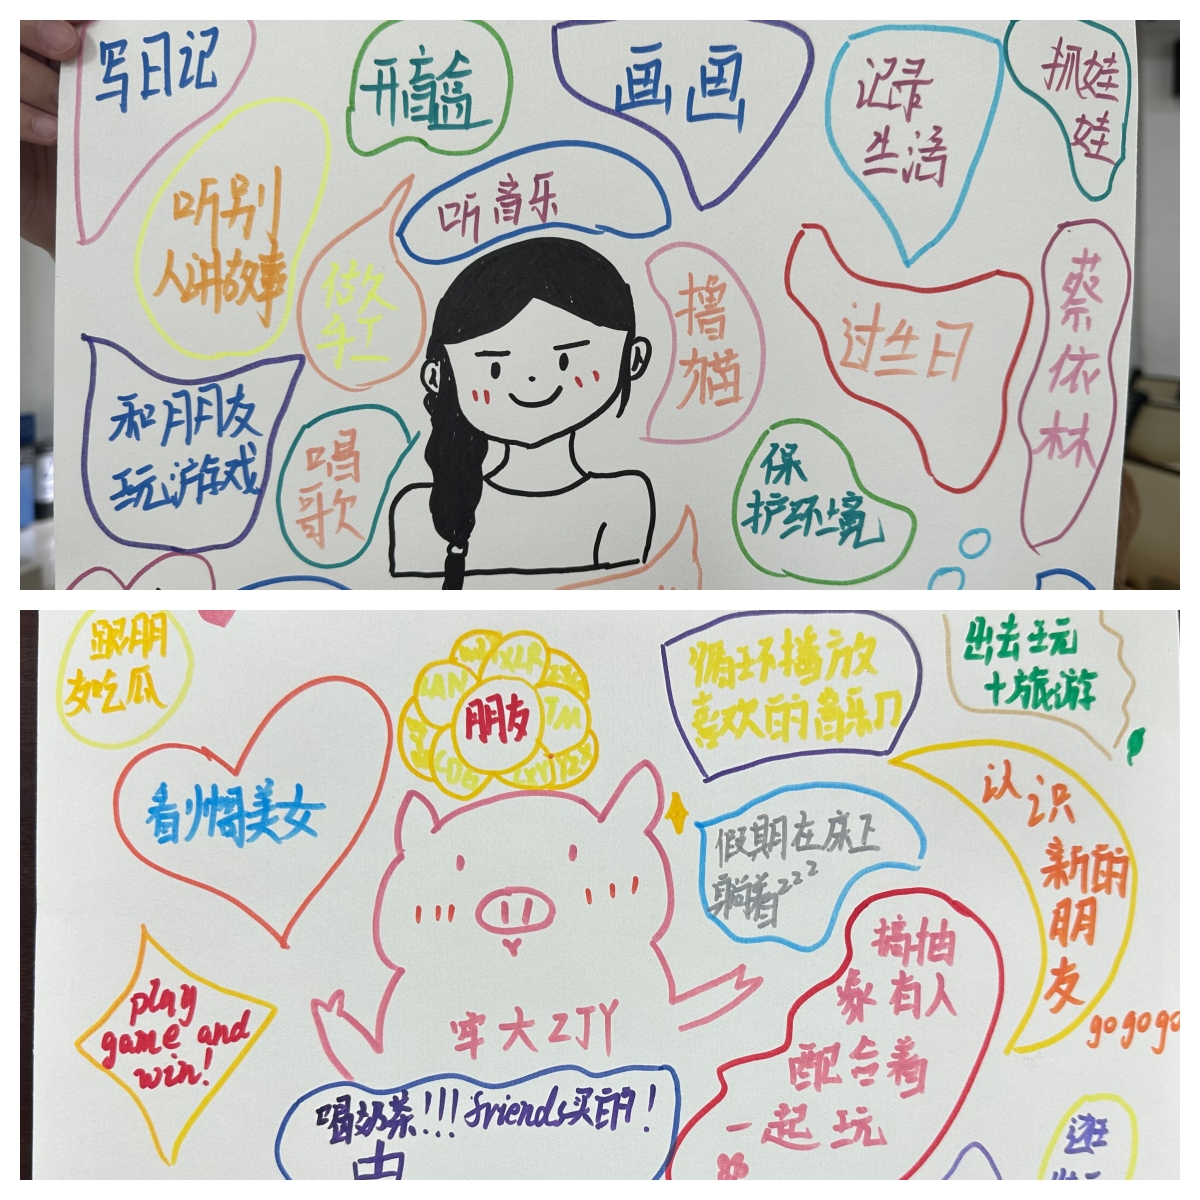 写日记
开盲盒
画画
记录
生活
抓娃
娃
听别
人讲故事
听音乐
做
手工
撸
猫
过生日
蔡
依
林
和朋友
玩游戏
唱
歌
保
护环境
跟朋
友吃瓜
朋友
XLR
LAN
TM
循环播放
喜欢的音乐
出去玩
+旅游
看帅哥美女
假期在床上
躺着zzz
认识
新的
朋
友
gogogo
搞抽
象有人
配合着
一起玩
play
game and
win!
牢大ZJY
喝奶茶!!!friends买的!
逛